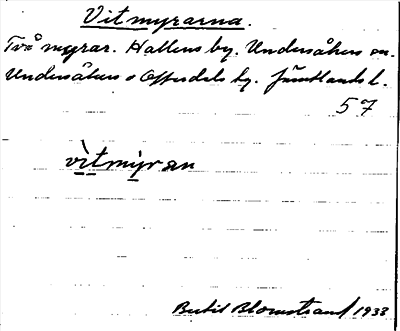 Vitmyrarna.
Två myrar. Hallens by. Undersåkers sn.
Undersåkers o Offerdals tg. Jämtlands l.
57
vìtmyran
Bertil Blomstrand 1933